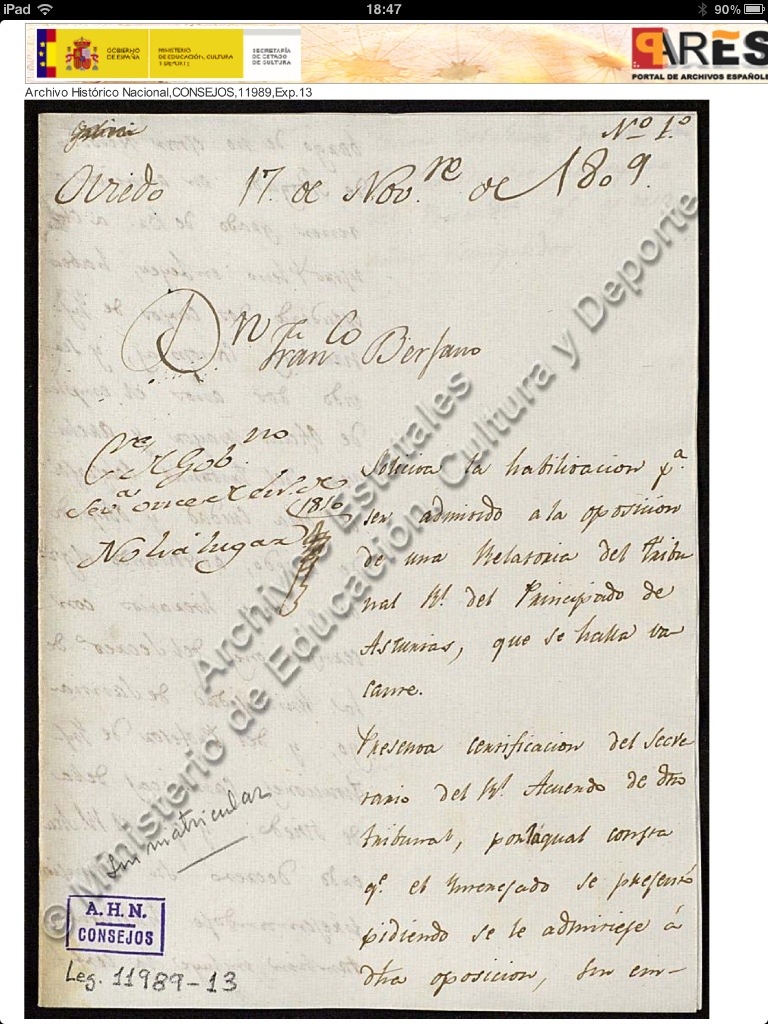 iPad 18:47 90%
GOBIERNO DE ESPAÑA
MINISTERIO DE EDUCACIÓN, CULTURA Y DEPORTE
SECRETARÍA DE ESTADO DE CULTURA
PARES
PORTAL DE ARCHIVOS ESPAÑOLE
Archivo Histórico Nacional,CONSEJOS,11989,Exp.13
Nº 1.º
Oviedo 17 de Nov.re de 1809.
Dn Franco Bersano
Solicita la habilitacion pª
ser admitido a la oposicion
de una Relatoria del tribu
nal Rl. del Principado de
Asturias, que se halla va
cante.
Presenta certificacion del secre
tario del Rl. Acuerdo de dho
tribunal, por la qual consta
qe. el Interesado se presentó
pidiendo se le admitiese á
dha oposicion, sin em-
1810
No há lugar
Sin matricular
A.H.N.
CONSEJOS
Leg. 11989-13
© Ministerio de Educación Cultura y Deporte
Archivos Estatales